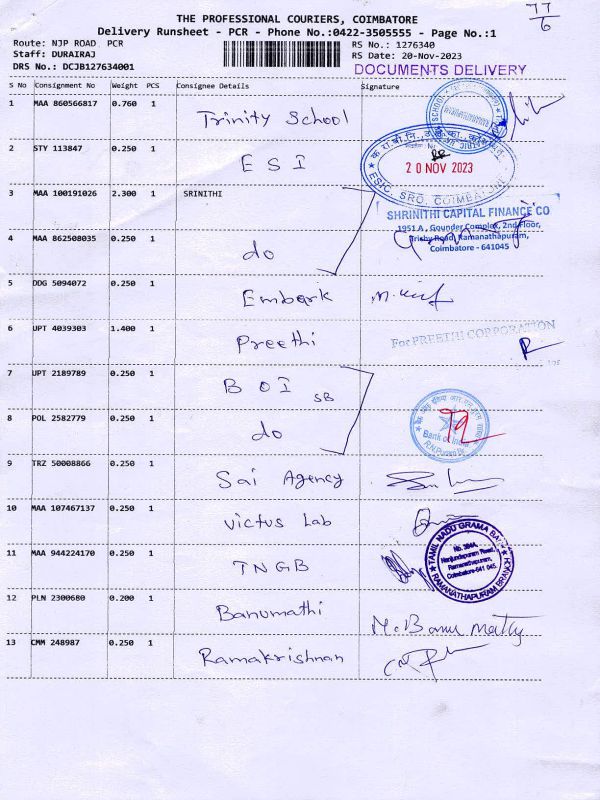 77
6
THE PROFESSIONAL COURIERS, COIMBATORE
Delivery Runsheet - PCR - Phone No.:0422-3505555 - Page No.:1
Route: NJP ROAD PCR
Staff: DURAIRAJ
DRS No.: DCJB127634001
RS No.: 1276340
RS Date: 20-Nov-2023
DOCUMENTS DELIVERY
S No Consignment No Weight PCS Consignee Details Signature
1 MAA 860566817 0.760 1 Trinity School
2 STY 113847 0.250 1 E S I
20 NOV 2023
ESIC, SRO, COIMBATORE
3 MAA 100191026 2.300 1 SRINITHI
SHRINITHI CAPITAL FINANCE CO
1951 A, Gounder Complex, 2nd Floor,
Trichy Road, Ramanathapuram,
Coimbatore - 641045
4 MAA 862508035 0.250 1 do
5 DDG 5094072 0.250 1 Embark
6 UPT 4039303 1.400 1 Preethi
For PREETHI CORPORATION
7 UPT 2189789 0.250 1 B O I SB
8 POL 2582779 0.250 1 do
Bank of India
9 TRZ 50008866 0.250 1 Sai Agency
10 MAA 107467137 0.250 1 Victus Lab
11 MAA 944224170 0.250 1 TNGB
TAMIL NADU GRAMA BANK
No. 384A,
Nanjundapuram Road,
Ramanathapuram,
Coimbatore-641 045.
RAMANATHAPURAM BRANCH
12 PLN 2300680 0.200 1 Banumathi M. Banumathy
13 CMM 248987 0.250 1 Ramakrishnan